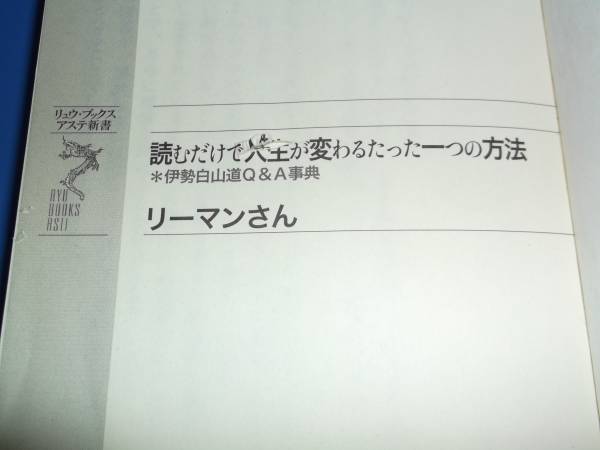 リュウ・ブックス
アステ新書
読むだけで人生が変わるたった一つの方法
＊伊勢白山道Q&A事典
リーマンさん
RYU
BOOKS
ASTI